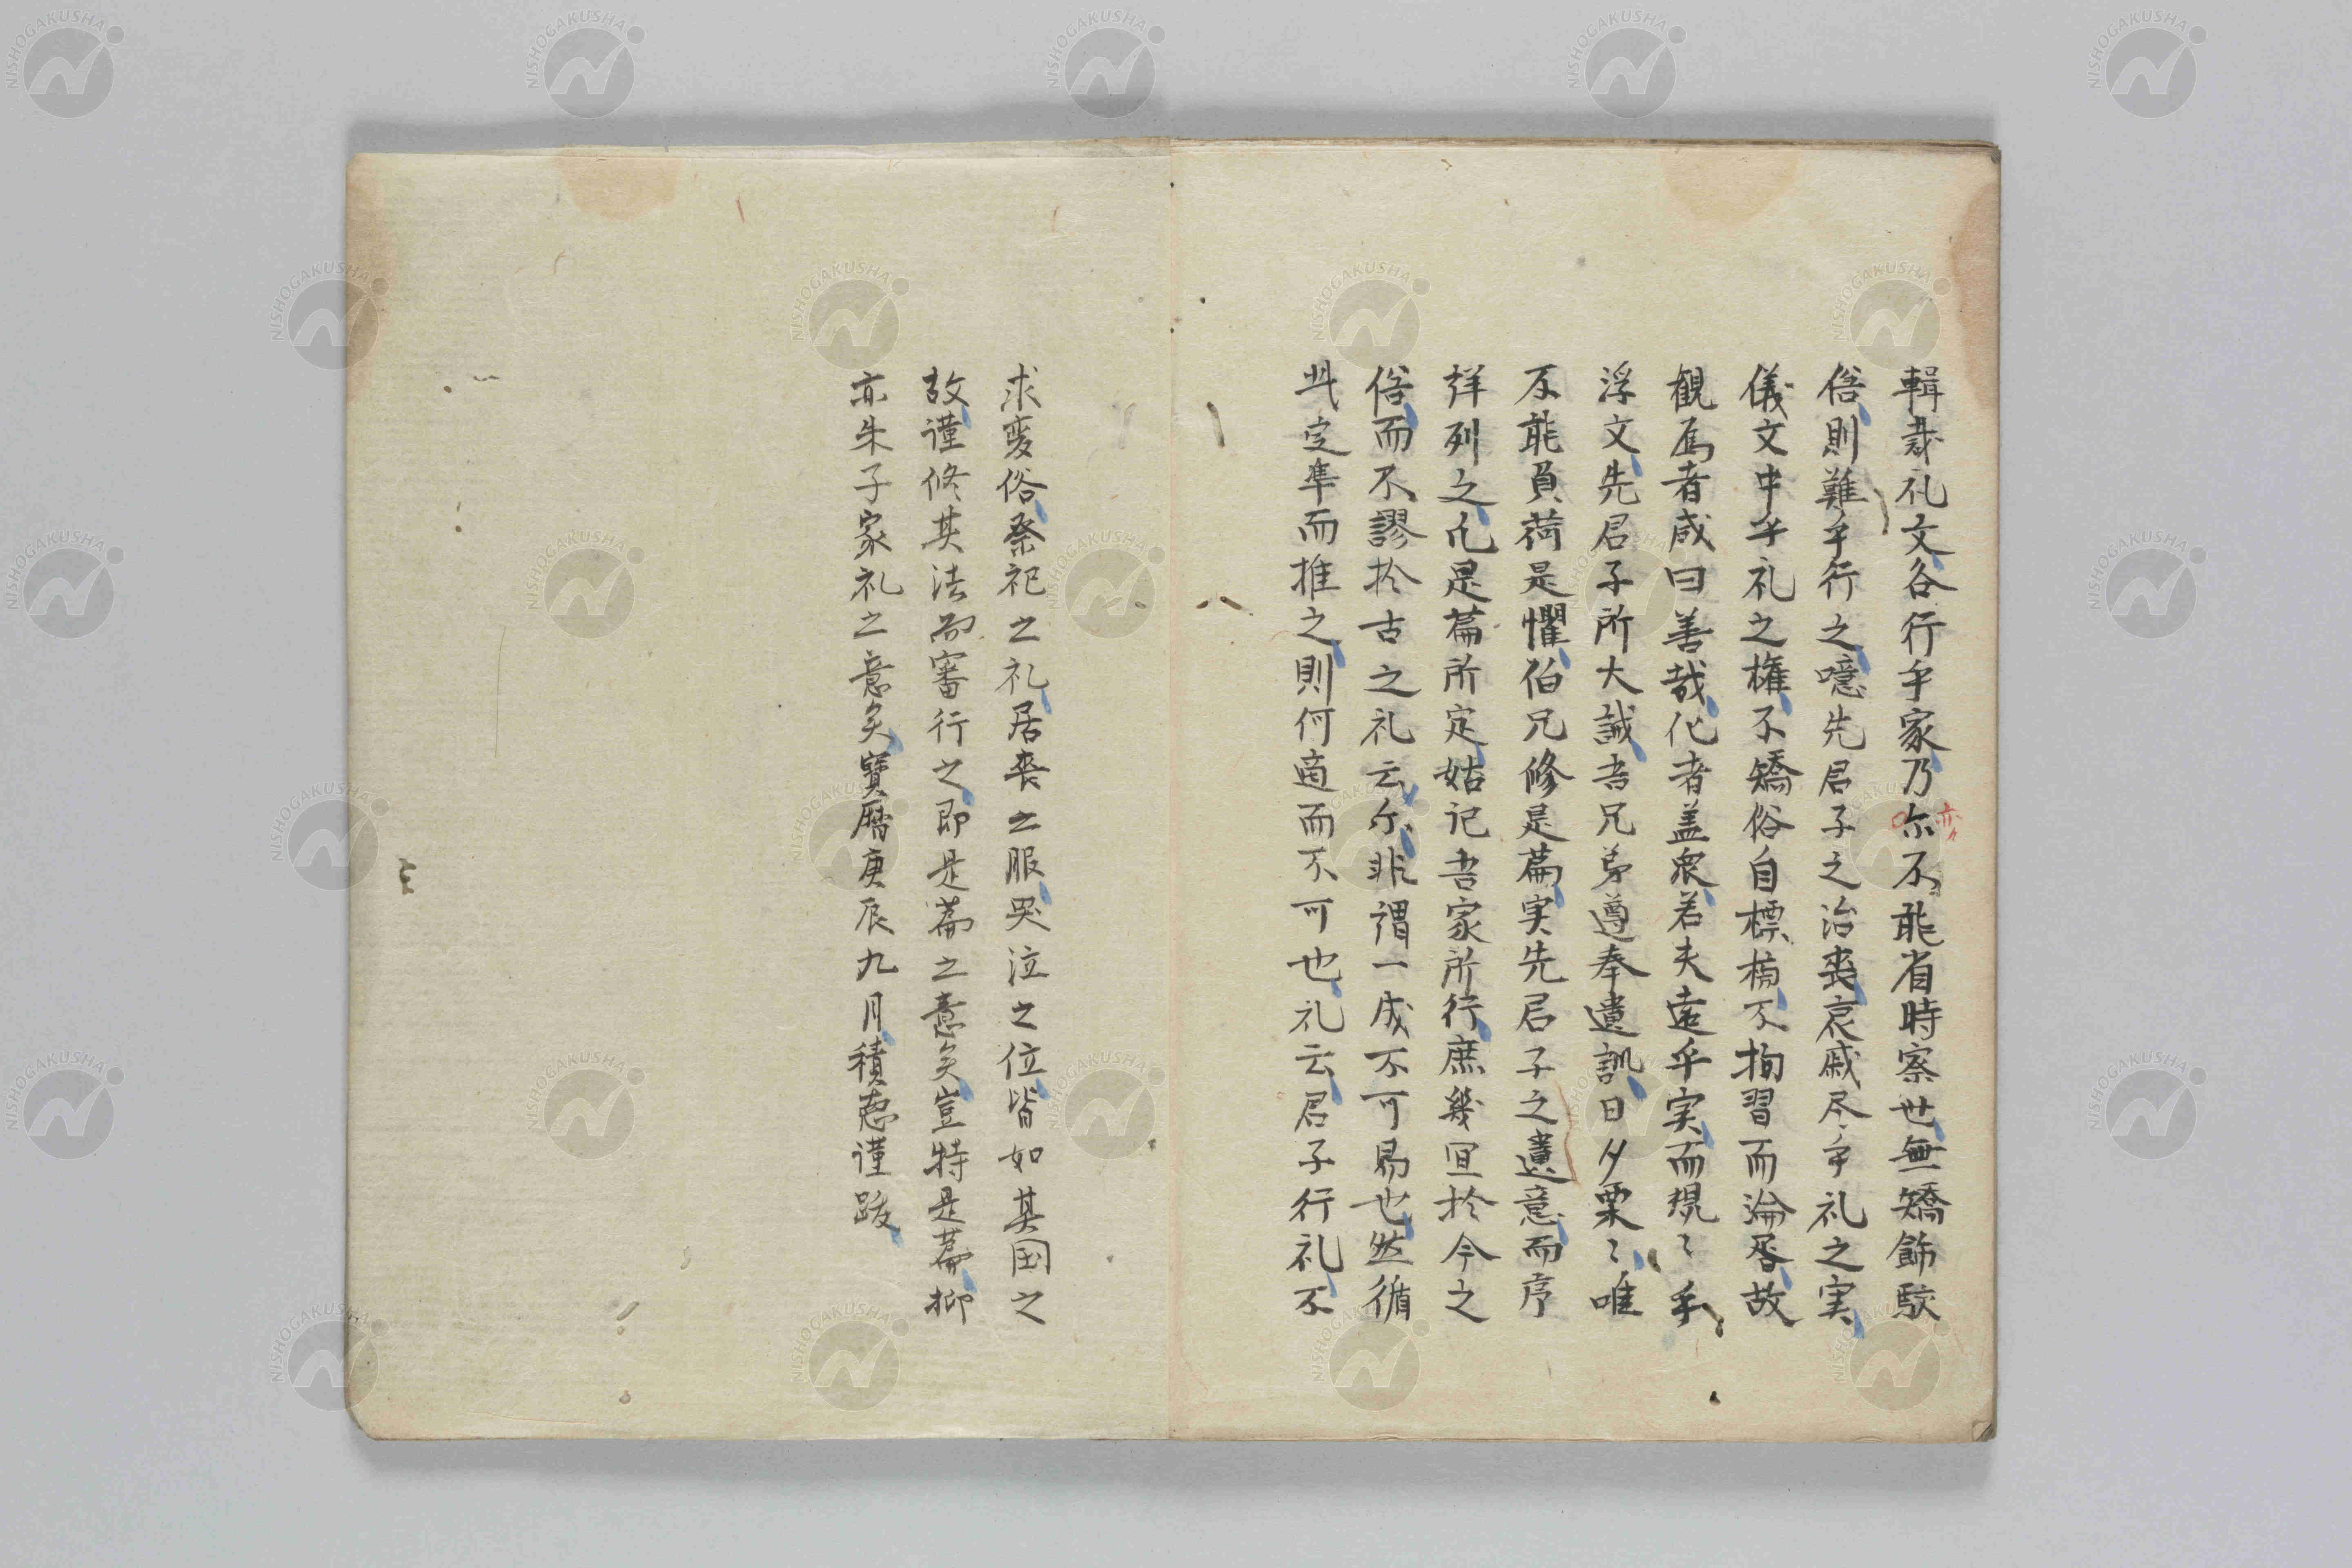 輯彝礼文各行乎家乃尓不能省時察世無矯飾駭
亦々
俗則難乎行之噫先君子之治喪哀戚尽乎礼之実
儀文中乎礼之権不矯俗自標榜不拘習而淪胥故
観焉者咸曰善哉化者盖衆若夫遠乎実而規〻乎
浮文先君子所大誡吾兄弟遵奉遺訓日夕栗〻唯
不能負荷是懼伯兄修是篇実先君子之遺意而序
詳列之凡是篇所定姑記吾家所行庶幾宜於今之
俗而不謬於古之礼云尓非謂一成不可易也然循
此定準而推之則何適而不可也礼云君子行礼不
求変俗祭祀之礼居喪之服哭泣之位皆如其国之
故謹修其法而審行之即是篇之意矣豈特是篇抑
亦朱子家礼之意矣寶暦庚辰九月積徳謹跋
NISHOGAKUSHA